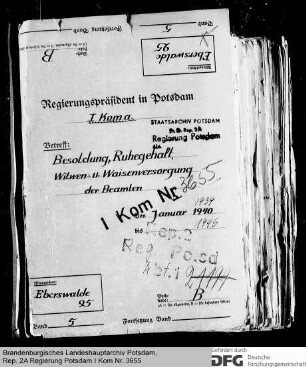 Band
5
Fortsetzung Band
B
Eberswalde
25
Regierungspräsident in Potsdam
I Kom a
STAATSARCHIV POTSDAM
Pr. Br. Rep. 2A
Regierung Potsdam
Betreff:
Besoldung, Ruhegehalt,
Witwen- u. Waisenversorgung
der Beamten
I Kom Nr. 3655
1939
Januar 1940
bis 1945
Rep. 2
Reg. Potsd
Abt. I
B
Eberswalde
25
Band 5
Fortsetzung Band
Brandenburgisches Landeshauptarchiv Potsdam,
Rep. 2A Regierung Potsdam I Kom Nr. 3655
Gefördert durch
DFG
Deutsche
Forschungsgemeinschaft